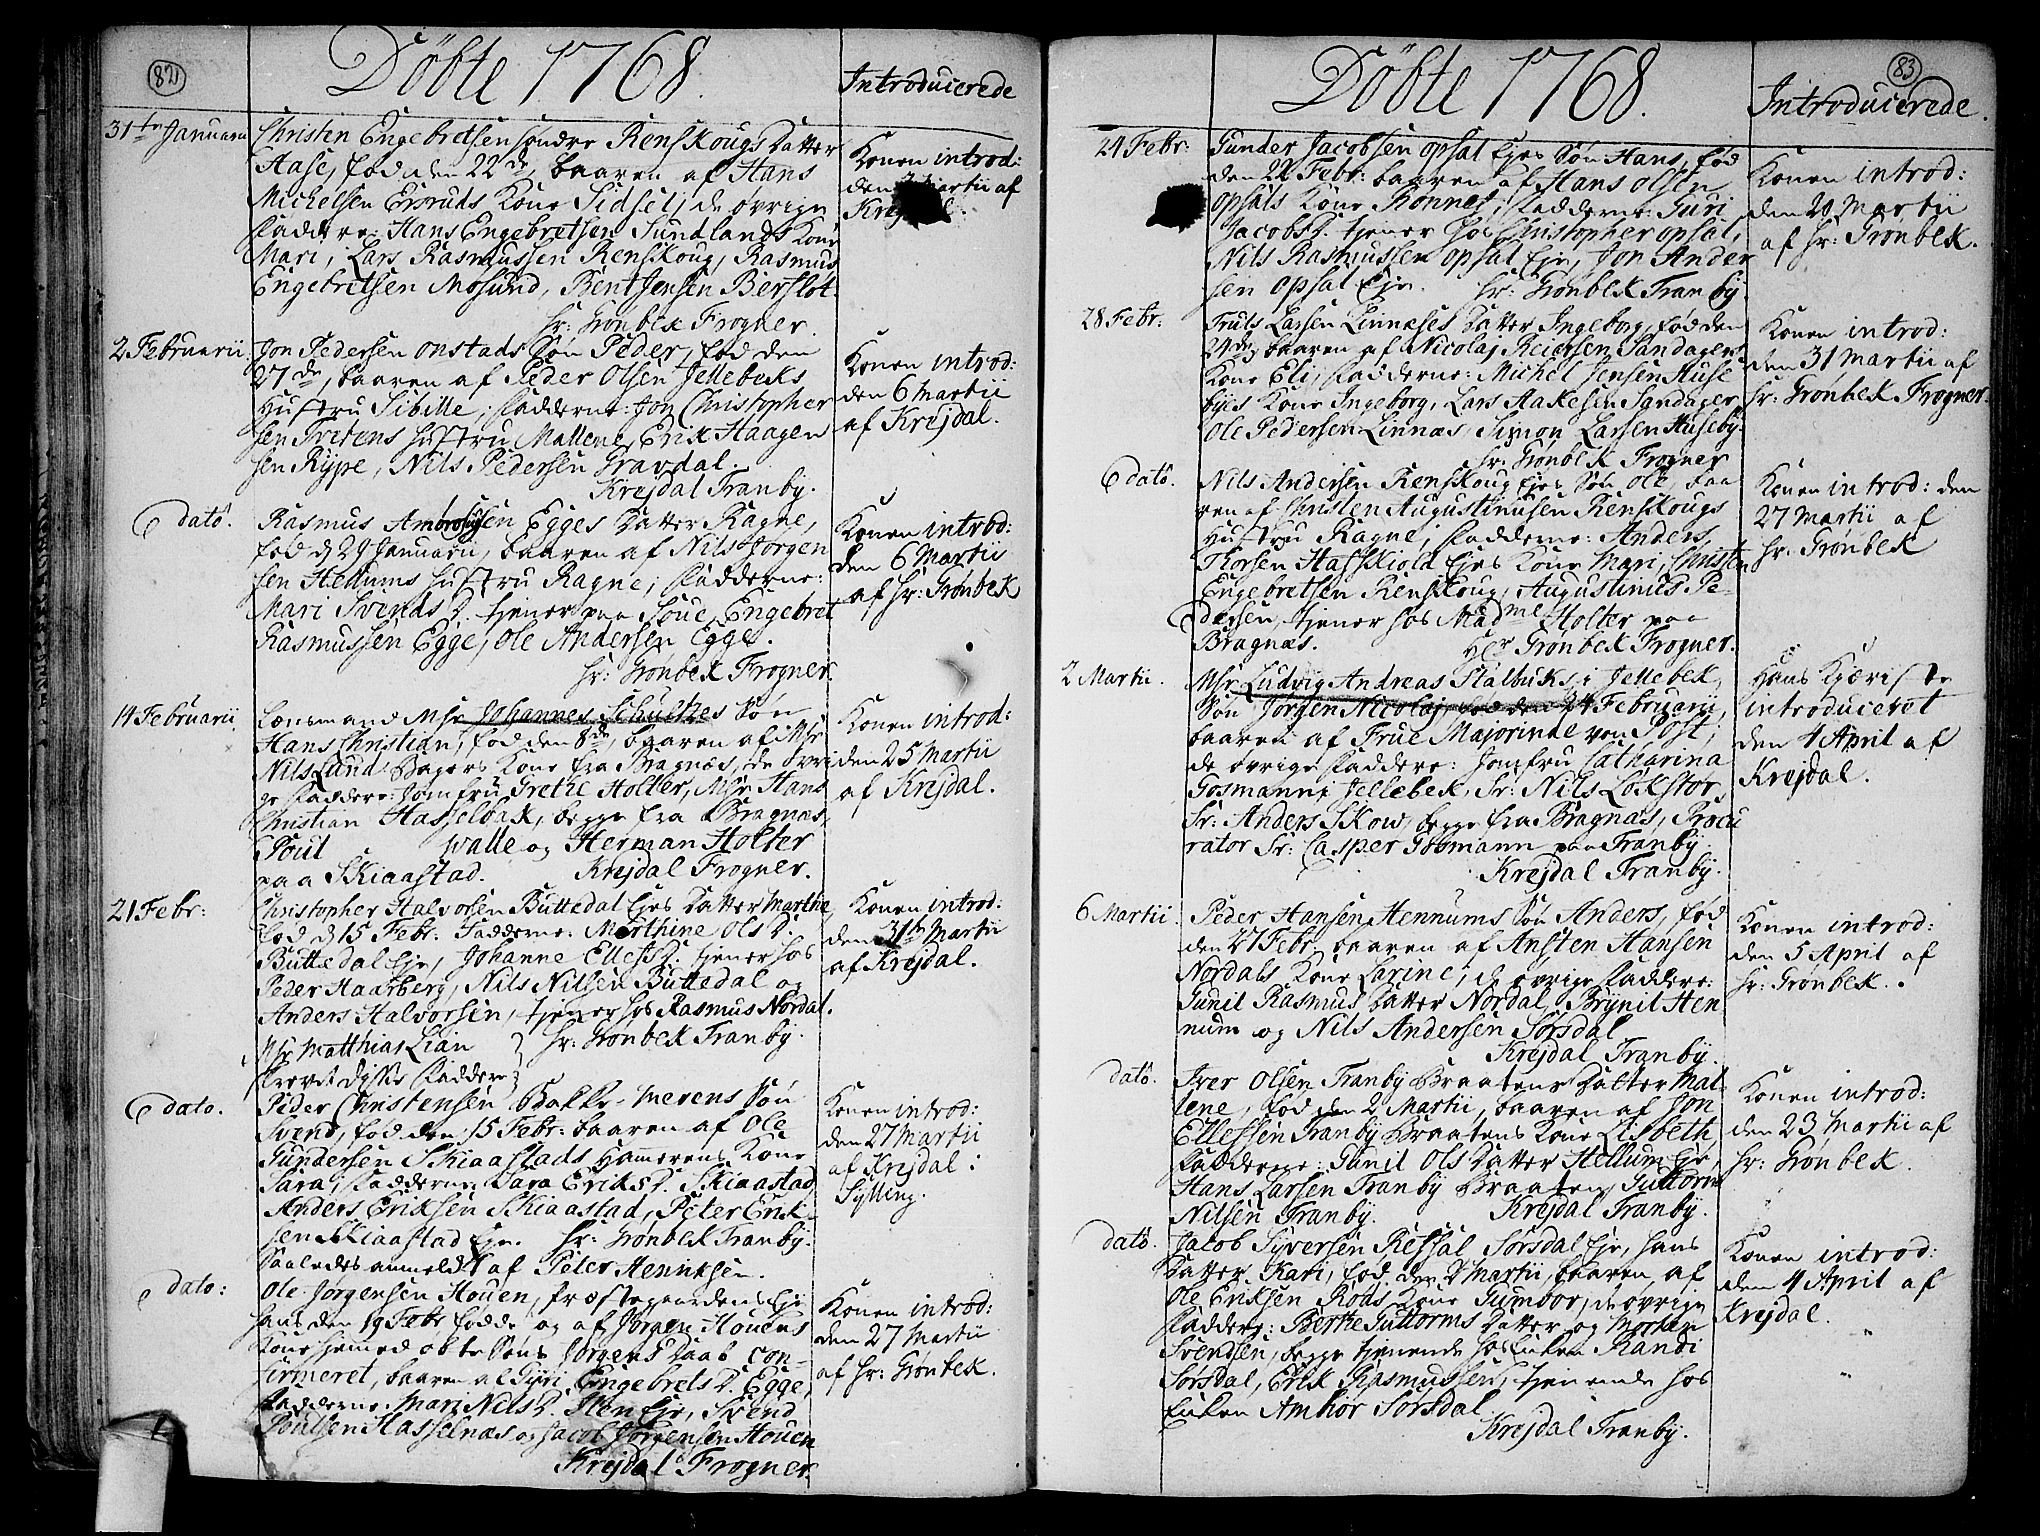 82
Döbte 1768.
Introducerede
31te Januarii
Christen Engebretsen søndre Renskougs Datter
Aase, fød den 22de, baaren af Hans
Michelsen Ersruds Kone Sidsel; de øvrige
Faddere: Hans Engebretsen Sundlands Kone
Mari, Lars Rasmussen Renskoug, Rasmus
Engebretsen Mosund, Bent Jensen Bersløt.
Hr: Grønbek Frogner.
Konen introd:
den Martii af
Krejdal.
2 Februarii
Jon Pedersen Onstads Søn Peder, fød den
27de, baaren af Peder Olsen Jellebeks
Hustru Sibille; Fadderne: Jon Christopher
sen Tveitens Hustru Mallene, Erik Haagen
sen Rype, Nils Pedersen Gravdal.
Krejdal Tranby.
Konen introd:
den 6 Martii
af Krejdal.
E dato.
Rasmus Ambrosiisen Egges Datter Ragne,
fød d 29 Januarii, baaren af Nils Jørgen
sen Hellums Hustru Ragne; Fadderne:
Mari Svends D. tjener paa Soue, Engebret
Rasmussen Egge, Ole Andersen Egge.
Hr: Grønbek Frogner.
Konen introd:
den 6 Martii
af Hr: Grønbek
14 Februarii
Lensmand Msr Johannes Schultzes Søn
Hans Christian, fød den 8de, baaren af Msr
Nils Lund Bagers Kone fra Bragnæs, de øvri
ge Faddere: Jomfru Grethe Holter, Msr Hans
Christian Hasselbak, begge fra Bragnæs,
Poul Walle og Herman Holter
paa Skiaastad. Krejdal Frogner.
Konen introd:
den 25 Martii
af Krejdal.
21 Febr:
Christopher Halvorsen Buttedal Ejes Datter Marthe
fød d 15 Febr: Fadderne: Marthine Ols D.
Buttedal Eje, Johanne Elles D. tjener hos
Peder Haarberg, Nils Nilsen Buttedal og
Anders Halvorsen, tjener hos Rasmus Nordal.
Msr Matthias Lian
skrevet disse Faddere
Hr: Grønbek Tranby.
Konen introd:
den 31te Martii
af Krejdal.
E dato.
Peder Christensen Bakke-Merens Søn
Svend, fød den 15 Febr: baaren af Ole
Gundersen Skiaastads Hammerens Kone
Sara; Fadderne Sara Eriks D. Skiaastad
Anders Eriksen Skiaastad, Peter Erik
sen Skiaastad Eje. Hr: Grønbek Tranby.
Saaledes anmeldt af Peter Henriksen.
Konen introd:
den 27 Martii
af Krejdal i
Sylling.
E dato:
Ole Jørgensen Houen, Præstegaardens Eje
hans den 19 Febr fødde og af Jørgen Houens
Kone hiemedøbte Søns Jørgens Daab con-
firmeret, baaren af Guri Engebrets D. Egge,
Fadderne Mari Nils D. Hen Eje, Svend
Poulsen Hasselnæs og Jacob Jørgensen Houen
Krejdal Frogner.
Konen introd:
den 27 Martii
af Hr: Grønbek.
83
Döbte 1768.
Introducerede.
24 Febr:
Gunder Jacobsen Opsal Ejes Søn Hans, fød
den 22 Febr: baaren af Hans Olsen
Opsals Kone Rønnet; Fadderne: Guri
Jacobs D. tjener hos Christopher Opsal,
Nils Rasmussen Opsal Eje, Jon Ander
sen Opsal Eje. Hr: Grønbek Tranby
Konen introd:
den 20 Martii
af Hr: Grønbek.
28 Febr:
Truls Larsen Linnæses Datter Ingeborg, fød den
24de, baaren af Nicolaj Reiersen Sandagers
Kone Eli; Fadderne: Michel Jensen Huse
byes Kone Ingeborg, Lars Aakesen Sandager
Ole Pedersen Linnæs, Simon Larsen Huseby.
Hr: Grønbek Frogner
Konen introd:
den 31 Martii af
Hr: Grønbek Frogner.
E dato.
Nils Andersen Renskoug Ejes Søn Ole, baa
ren af Christen Augustinusen Renskougs
Hustru Ragne; Fadderne: Anders
Thorsen Hasskiold Ejes Kone Mari, Christen
Engebretsen Renskoug, Augustinus Pe-
dersen, tjener hos Madme Holter paa
Bragnæs. Her Grønbek Frogner.
Konen introd: den
27 Martii af
Hr: Grønbek
2 Martii.
Msr Ludvig Andreas Stalbuks i Jellebek
Søn Jørgen Nicolaj, fød den 24 Februarii,
baaren af Frue Majorinde von Post,
de øvrige Faddere: Jomfru Catharina
Gosmann i Jellebek, Sr: Nils Lökstør,
Sr: Anders Skow, begge fra Bragnæs, Procu
rator Sr: Casper Gosmann paa Tranby.
Krejdal Tranby.
Hans Kjæriste
introduceret
den 4 April af
Krejdal.
6 Martii
Peder Hansen Hennums Søn Anders, fød
den 27 Febr, baaren af Ansten Hansen
Nordals Kone Larine; de øvrige Faddere:
Gunil Rasmus Datter Nordal, Brynil Hen
num og Nils Andersen Sørsdal
Krejdal Tranby.
Konen introd:
den 5 April af
Hr: Grønbek.
dato.
Iver Olsen Tranby Braatens Datter Mal
lene, fød den 2 Martii, baaren af Jon
Ellefsen Tranby Braatens Kone Lisbeth
Fadderne: Gunil Ols Datter Hellum Eje,
Hans Larsen Tranby Braaten, Guttorm
Nilsen Tranby. Krejdal Tranby.
Konen introd:
den 23 Martii af
Hr: Grønbek.
dato.
Jacob Syversen Ressal Sørsdal Eje, hans
Datter Kari, fød den 2 Martii, baaren af
Ole Eriksen Røds Kone Gumbor, de øvrige
Faddere: Berthe Guttorms Datter og Morten
Svendsen, begge tjenende hos Enken Randi
Sørsdal, Erik Rasmussen, tjenende hos
Enken Ambior Sørsdal
Krejdal Tranby.
Konen introd:
den 4 April af
Krejdal.